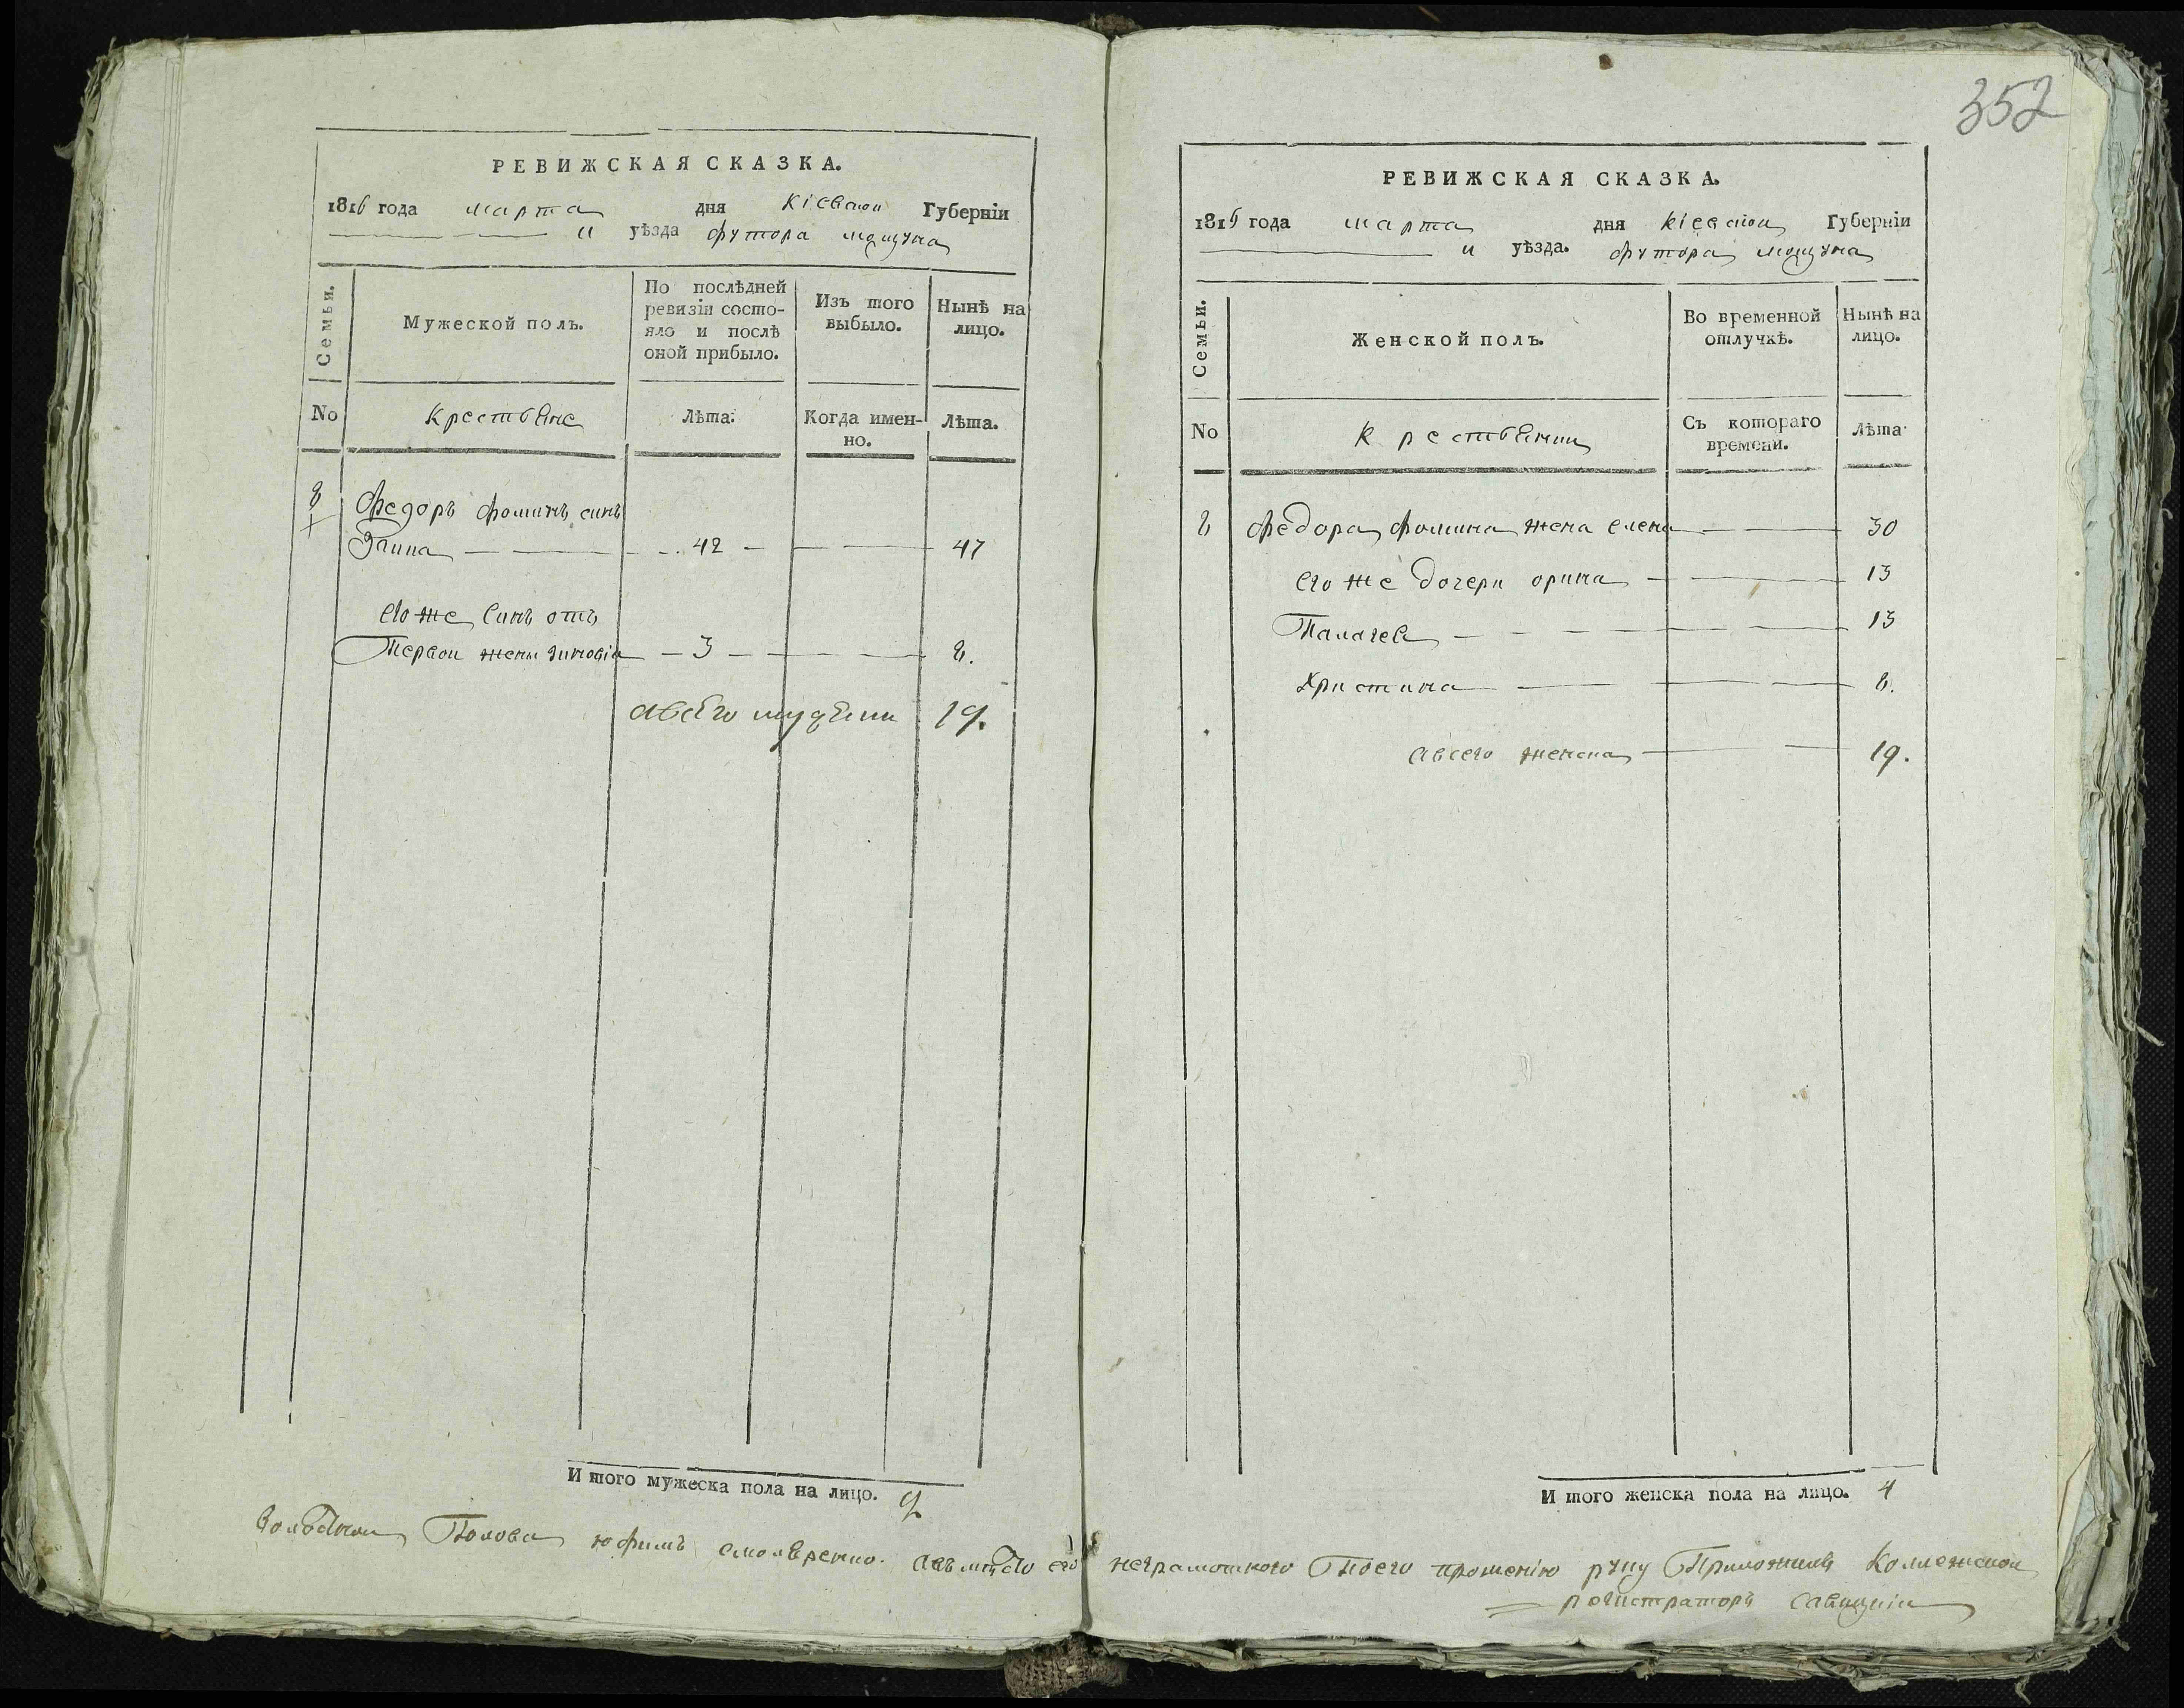 РЕВИЖСКАЯ СКАЗКА.
1816 года марта дня Кіевской Губерніи
и уѣзда футора мощуна
Семьи.
Мужеской полъ.
По послѣдней ревизіи состояло и послѣ оной прибыло.
Изъ того выбыло.
Нынѣ на лицо.
No
Крестьяне
Лѣта.
Когда именно.
Лѣта.
8
Федоръ фоминъ синъ
42 47
его же синъ отъ
Первои жены зиновіи 3 8.
19.
И того мужеска пола на лицо. 2
352
РЕВИЖСКАЯ СКАЗКА.
1816 года марта дня кіевской Губерніи
и уѣзда. футора мощуна
Семьи.
Женской полъ.
Во временной отлучкѣ.
Нынѣ на лицо.
No
Крестьянки
Съ котораго времени.
Лѣта
8 федора фомина жена елена 30
его же дочери орина 13
Палагея 13
Христина 8.
авсего женска 19.
И того женска пола на лицо. 4
юфимъ авмѣсто его неграмотного Поего прошенію руку Приложилъ Колежской
регистраторъ савицкіи